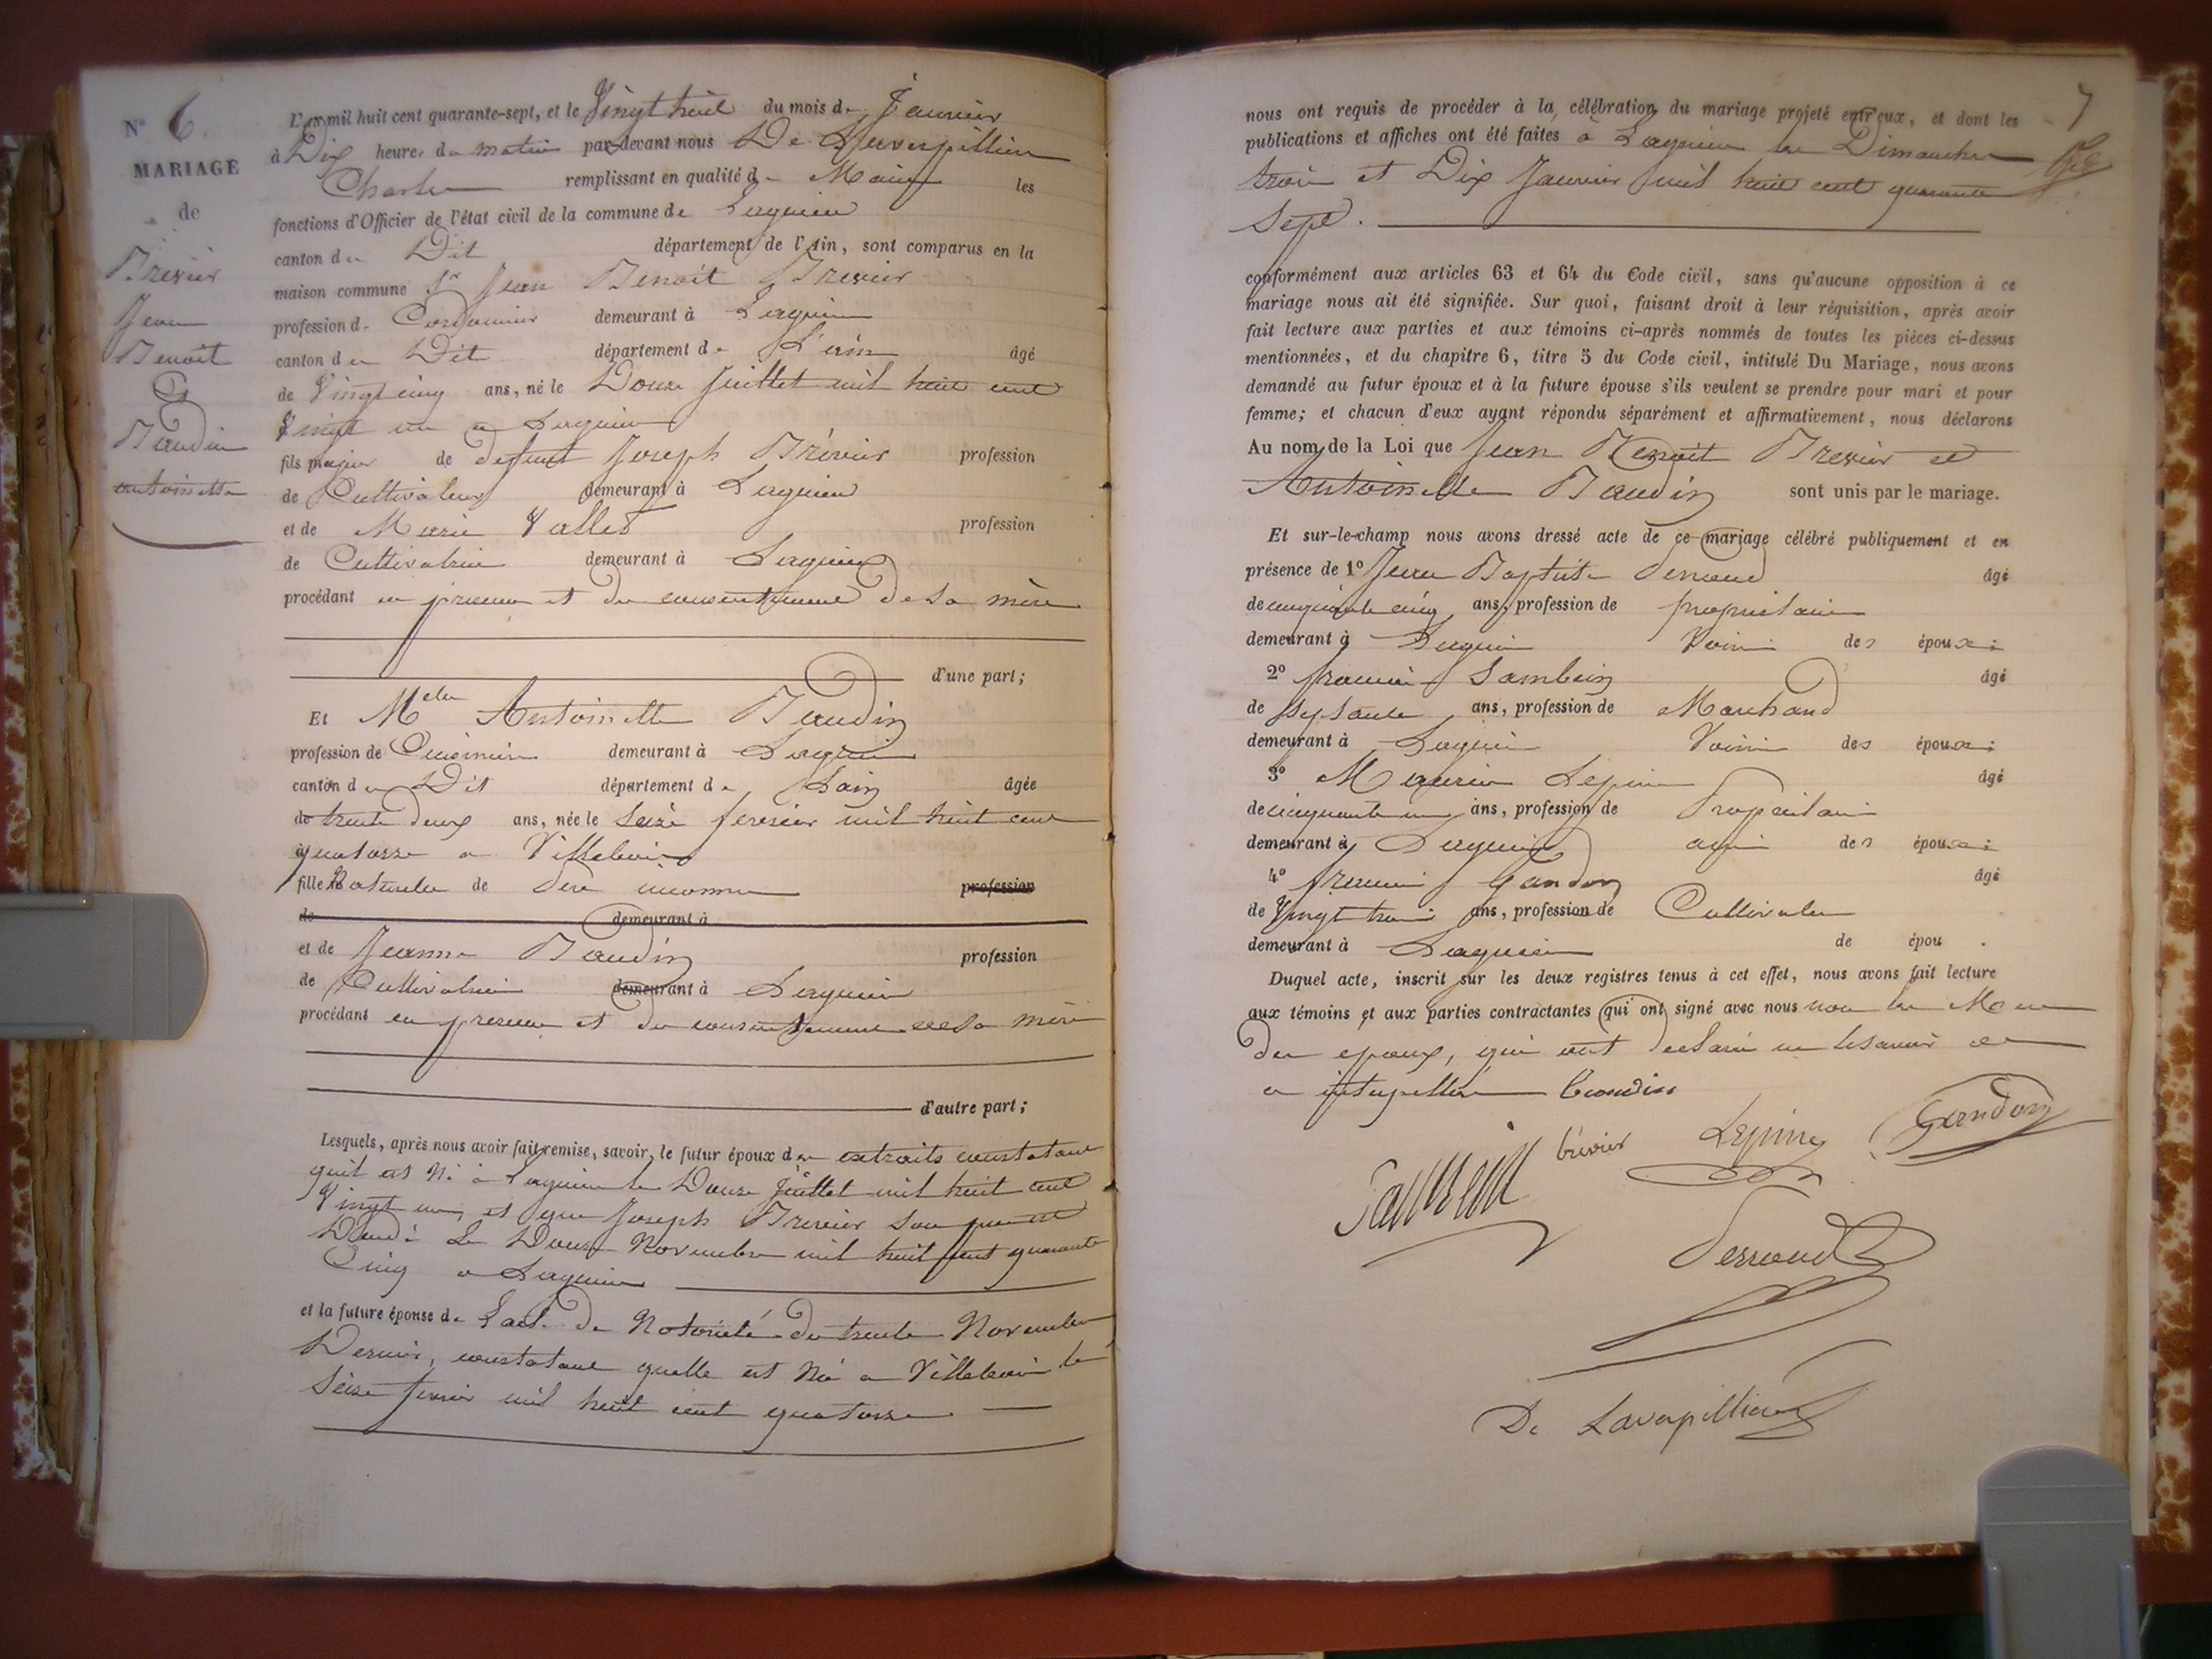 N° 6.
MARIAGE
de
Brevier
Jean
Benoit
Et
Baudin
antoinette
L'an mil huit cent quarante-sept, et le Vingt huit du mois de Janvier
à Dix heures du matin par devant nous De Laverpillière
Charles remplissant en qualité de Maire les
fonctions d'Officier de l'état civil de la commune de Lagnieu
canton du Dit département de l'Ain, sont comparus en la
maison commune Sr Jean Benoit Brevier
profession de Cordonnier demeurant à Lagnieu
canton du Dit département de L'ain âgé
de Vingt cinq ans, né le Douze Juillet mil huit cent
Vingt un a Lagnieu
fils majeur de defunt Joseph Brévier profession
de Cultivateur demeurant à Lagnieu
et de Marie Vallet profession
de Cultivatrice demeurant à Lagnieu
procédant en presence et du consentement de sa mère
d'une part;
Et Melle Antoinette Baudin
profession de Cuisinière demeurant à Lagnieu
canton du Dit département de Lain âgée
de trente deux ans, née le Seize fevrier mil huit cent
quatorze a Villebois
fille Naturelle de Père inconnu profession
de demeurant à
et de Jeanne Baudin profession
de Cultivatrice demeurant à Lagnieu
procédant en presence et du consentement de sa mère
d'autre part;
Lesquels, après nous avoir fait remise, savoir, le futur époux des extraits constatant
quil est Né à Lagnieu le Douze Juillet mil huit cent
Vingt un, et que Joseph Brevier son pere est
Décedé Le Douze Novembre mil huit cent quarante
Cinq a Lagnieu
et la future épouse de Lacte De Notoriété du trente Novembre
Dernier, constatant quelle est Née a Villebois le
Seize fevrier mil huit cent quatorze
7
nous ont requis de procéder à la célébration du mariage projeté entr'eux, et dont les
publications et affiches ont été faites a Lagnieu les Dimanches
trois et Dix Janvier mil huit cent quarante
Sept.
conformément aux articles 63 et 64 du Code civil, sans qu'aucune opposition à ce
mariage nous ait été signifiée. Sur quoi, faisant droit à leur réquisition, après avoir
fait lecture aux parties et aux témoins ci-après nommés de toutes les pièces ci-dessus
mentionnées, et du chapitre 6, titre 5 du Code civil, intitulé Du Mariage, nous avons
demandé au futur époux et à la future épouse s'ils veulent se prendre pour mari et pour
femme; et chacun d'eux ayant répondu séparément et affirmativement, nous déclarons
Au nom de la Loi que Jean Benoit Brevier et
Antoinette Baudin sont unis par le mariage.
Et sur-le-champ nous avons dressé acte de ce mariage célébré publiquement et en
présence de 1° Jean Baptiste Perroud âgé
de cinquante cinq ans, profession de propriétaire
demeurant à Lagnieu Voisin des époux;
2° francois Sambein âgé
de Soixante ans, profession de Marchand
demeurant à Lagnieu Voisin des époux;
3° Maurice Lepine âgé
de cinquante un ans, profession de Propriétaire
demeurant à Lagnieu ami des époux;
4° francois Gandon âgé
de Vingt trois ans, profession de Cultivateur
demeurant à Lagnieu de épou .
Duquel acte, inscrit sur les deux registres tenus à cet effet, nous avons fait lecture
aux témoins et aux parties contractantes qui ont signé avec nous non les Meres
des epoux, qui ont declaré ne le savoir de
ce interpellées Baudin
brévier Lepine Gandon
Sambein
Perroud
De Laverpillière